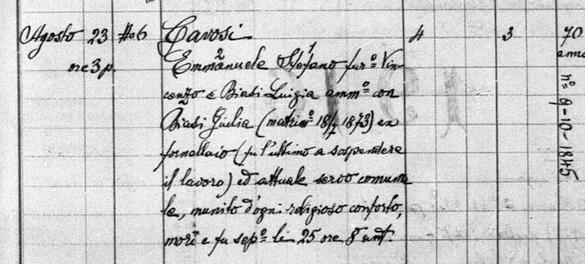 Agosto 23 No 6 Cavosi 4 3 70
ore 3 p. Emmanuele Stefano fu Vin- anni
cenzo e Biasi Luigia amm.o con
Biasi Giulia (matrim.o 18/ 1873) ex
fornellaio (fu l'ultimo a sospendere
il lavoro) ed attuale servo comuna
le, munito d'ogni religioso conforto,
morì e fu sep.o li 25 ore 8 ant.
n.o 9-10-1845